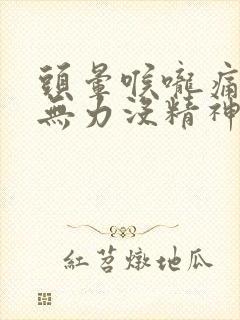 頭暈喉嚨痛
無力沒精神
紅苕燉地瓜